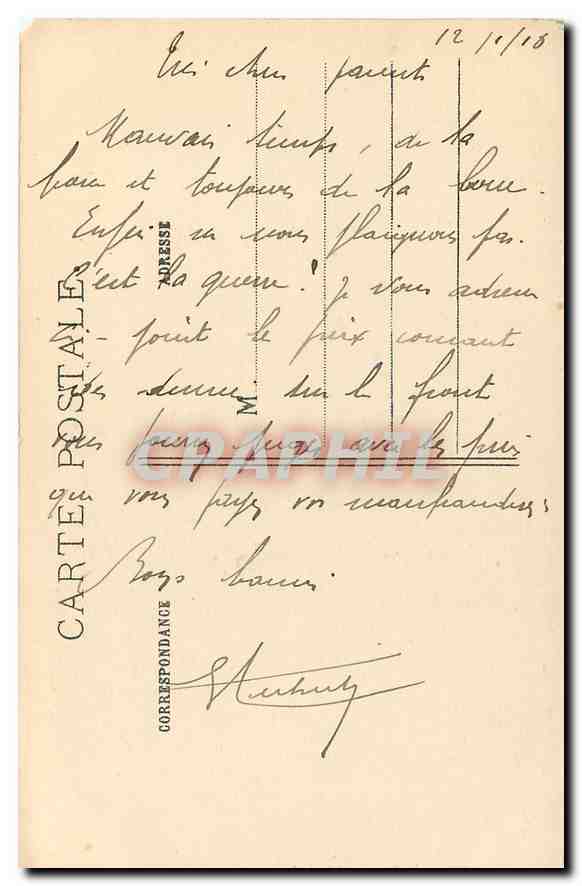 12/1/18
Très chers parents
Mauvais temps, de la
boue et toujours de la boue.
Enfin ne nous plaignons pas.
C'est la guerre! Je vous adresse
ci-joint le prix courant
des denrées sur le front
vous pourrez juger avec les prix
que vous payez vos marchandises
Bons baisers
CARTE POSTALE
ADRESSE
M.
CORRESPONDANCE
CARTAPHIL